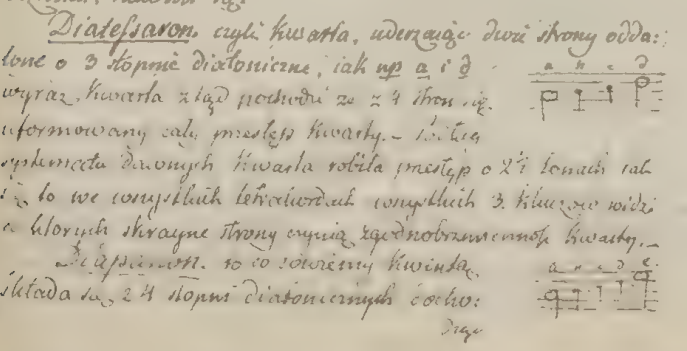 Diatessaron. czyli Kwarta, uderzaiąc dwie strony odda:
lone o 3 stopnie diatoniczne, iak np a i d
a h c d
wyraz Kwarta ztąd pochodzi ze z 4 stron się
uformowany cały przestęp Kwarty. –
systematu dawnych Kwarta robiła przestęp o 2½ tonach iak
się to we wszystkich tetrakordach wszystkich 3. kluczow widzi
w ktorych skrayne strony czynią zgodnobrzmienność Kwarty. –
to co zowiemy Kwintą,
a h c d e
składa się z 4 stopni diatonicznych